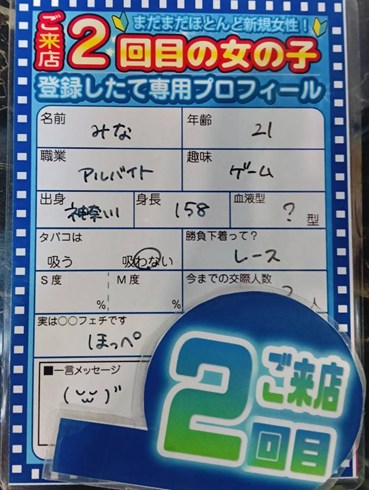 まだまだほとんど新規女性！
ご来店2回目の女の子
登録したて専用プロフィール
名前 みな 年齢 21
職業 アルバイト 趣味 ゲーム
出身 神奈川 身長 158 血液型 ? 型
タバコは 吸う 吸わない 勝負下着って？ レース
S度 % M度 % 今までの交際人数 人
実は○○フェチです
ほっぺ
■一言メッセージ
ご来店
2回目